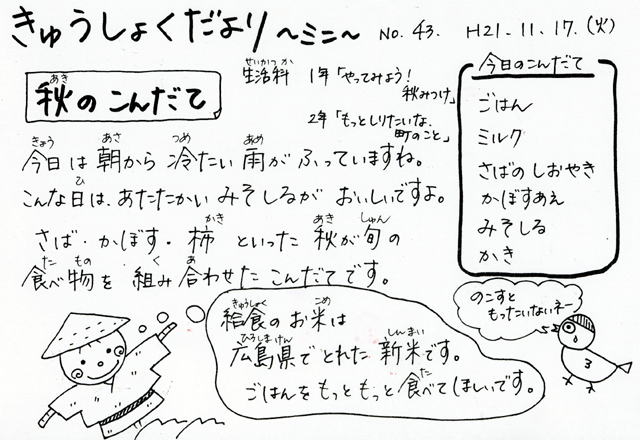 きゅうしょくだより 〜ミニ〜 No. 43. H21. 11. 17. (火)
秋のこんだて
生活科 1年「やってみよう!
秋みつけ」
2年「もっとしりたいな、
町のこと」
今日は 朝から 冷たい 雨が ふっていますね。
こんな日は、あたたかい みそしるが おいしいですよ。
さば・かぼす・柿 といった 秋が旬の
食べ物を 組み合わせた こんだてです。
今日のこんだて
ごはん
ミルク
さばの しおやき
かぼすあえ
みそしる
かき
給食の お米は
広島県で とれた 新米です。
ごはんを もっともっと 食べて ほしいです。
のこすと
もったいないネー
3